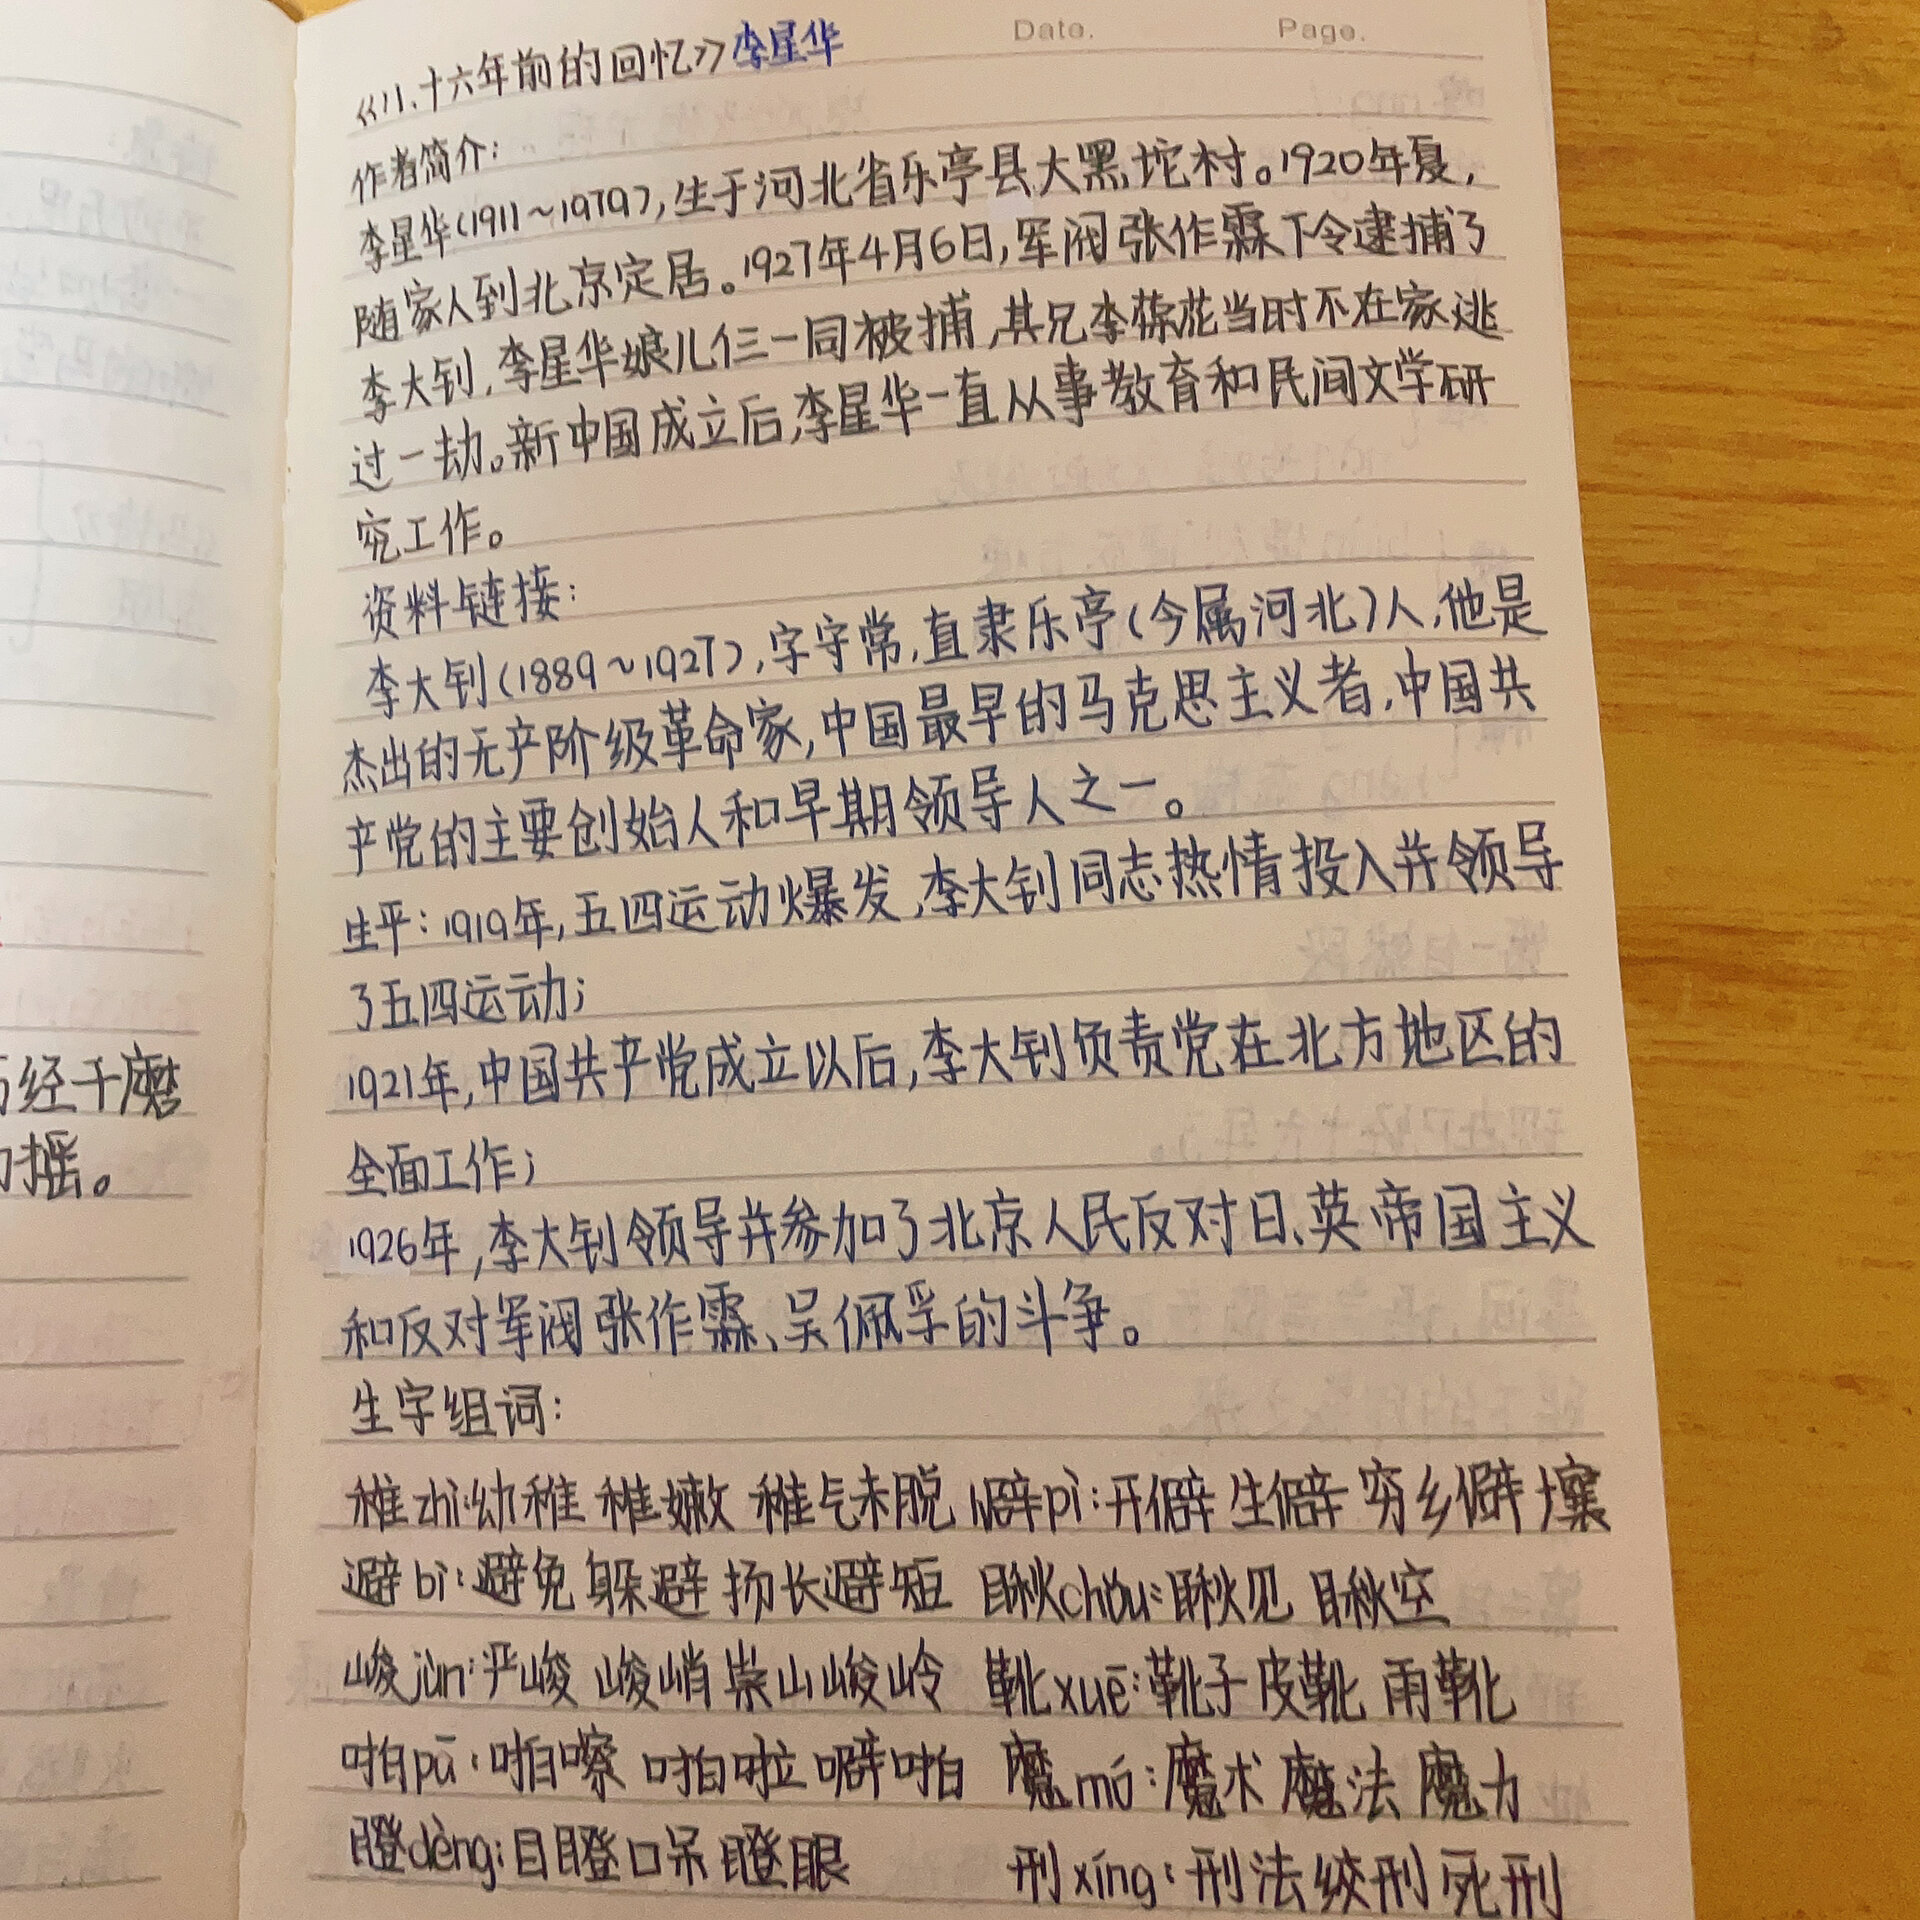 Date. Page.
《11.十六年前的回忆》李星华
作者简介:
李星华(1911~1979),生于河北省乐亭县大黑坨村。1920年夏,
随家人到北京定居。1927年4月6日,军阀张作霖下令逮捕了
李大钊,李星华娘儿仨一同被捕,其兄李葆花当时不在家逃
过一劫。新中国成立后,李星华一直从事教育和民间文学研
究工作。
资料链接:
李大钊(1889~1927),字守常,直隶乐亭(今属河北)人,他是
杰出的无产阶级革命家,中国最早的马克思主义者,中国共
产党的主要创始人和早期领导人之一。
生平:1919年,五四运动爆发,李大钊同志热情投入并领导
了五四运动;
1921年,中国共产党成立以后,李大钊负责党在北方地区的
全面工作;
1926年,李大钊领导并参加了北京人民反对日、英帝国主义
和反对军阀张作霖、吴佩孚的斗争。
生字组词:
稚zhì:幼稚 稚嫩 稚气未脱 僻pì:开僻 生僻 穷乡僻壤
避bì:避免 躲避 扬长避短 瞅chǒu:瞅见 瞅空
峻jùn:严峻 峻峭 崇山峻岭 靴xuē:靴子 皮靴 雨靴
啪pā:啪嚓 啪啦 噼啪 魔mó:魔术 魔法 魔力
瞪dèng:目瞪口呆 瞪眼 刑xíng:刑法 绞刑 死刑
经千磨
摇。